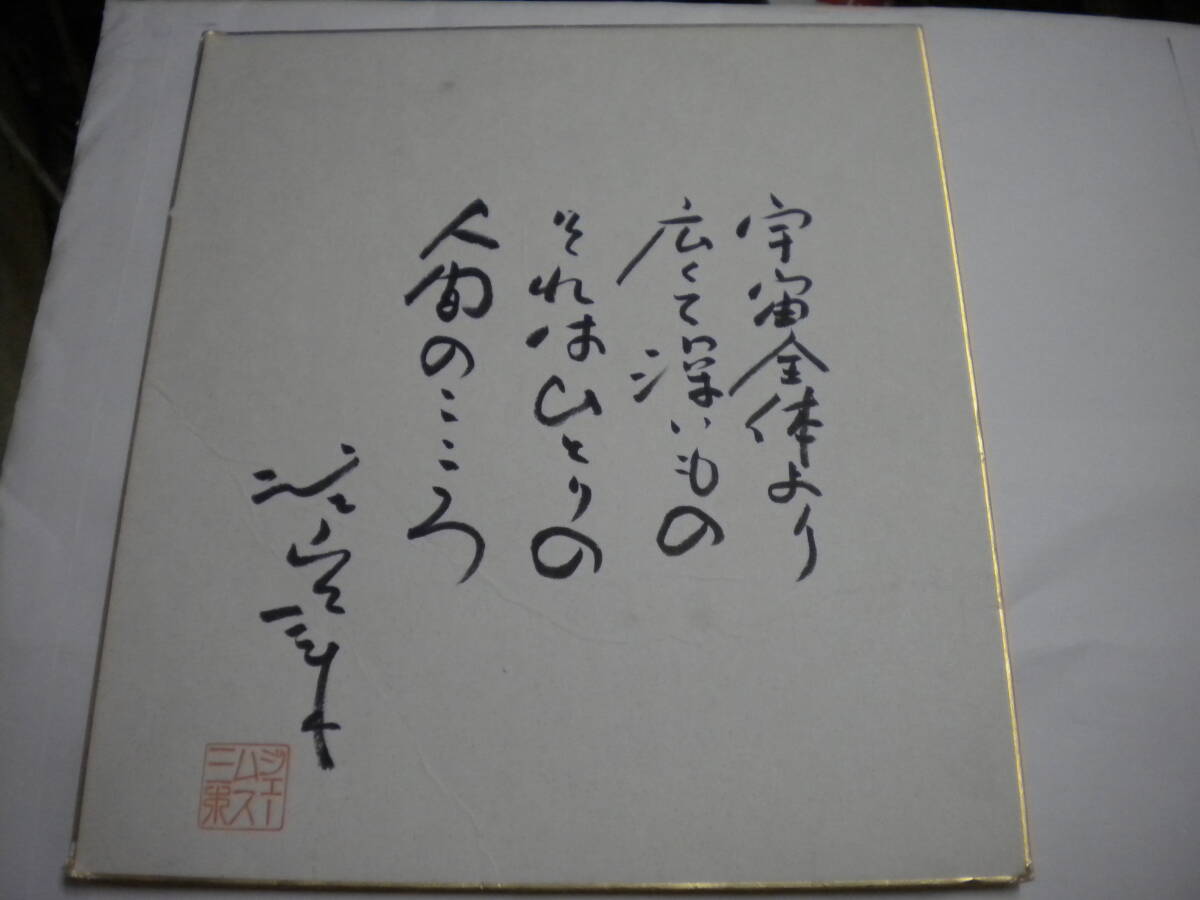 宇宙全体より
広くて深いもの
それはひとりの
人間のこころ
ジェー
ムス
三木